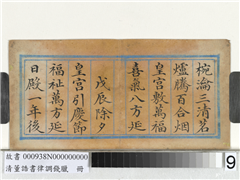 椀瀹三清茗
爐騰百合烟
皇宮敷萬福
喜氣八方延
戊辰除夕
皇宮引慶節
福祉萬方延
日殿一年後
故書 000938N000000000
清董誥書律調錢臘 冊
9